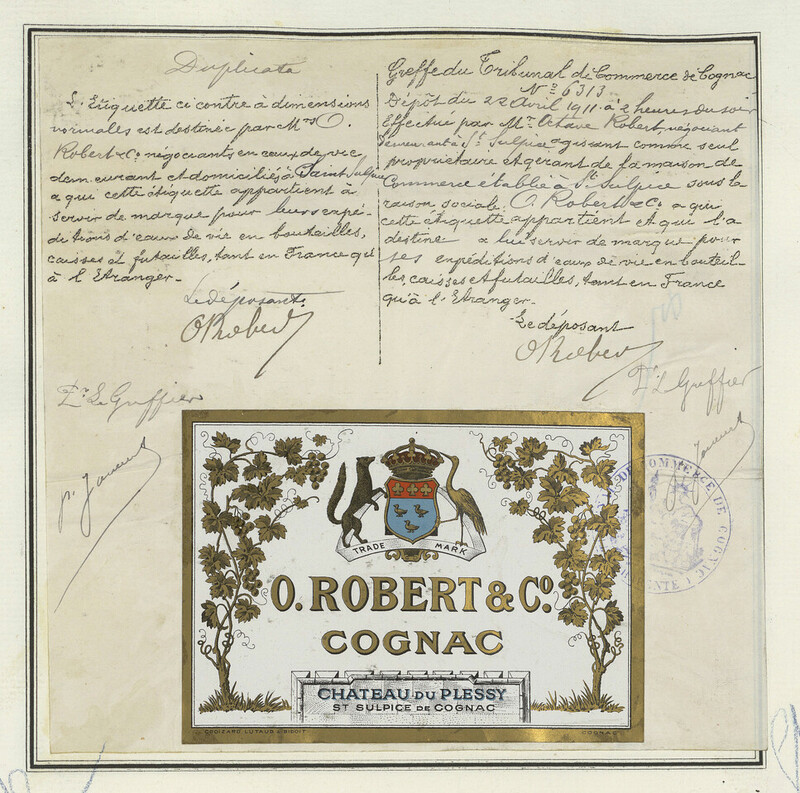 Duplicata
L'Etiquette ci contre à dimensions
normales est destinée par Mrs O.
Robert & Co. négociants en eaux de vie
demeurant et domiciliés à Saint Sulpice
a qui cette étiquette appartient à
servir de marque pour leurs expé-
ditions d'eaux de vie en boutailles,
caisses et futailles, tant en France qu'
à l'Etranger.
Le déposant.
O Robert
Pr Le Greffier
Greffe du Tribunal de Commerce de Cognac
No 6313
Dépôt du 22 Avril 1911 à 2 heures du soir
Effectué par Mr. Octave Robert, négociant
demeurant à St. Sulpice agissant comme seul
propriétaire et gérant de la maison de
Commerce établie à St Sulpice sous la
raison sociale O. Robert & Co. a qui
cette étiquette appartient et qui l'a
destine a lui servir de marque pour
ses expéditions d'eaux de vie en bouteil-
les, caisses et futailles, tant en France
qu'à l'Etranger.
Le déposant
O Robert
Pr Le Greffier
DE COMMERCE DE COGNAC
TRADE MARK
O. ROBERT & Co.
COGNAC
CHATEAU DU PLESSY
ST SULPICE DE COGNAC
COGNAC